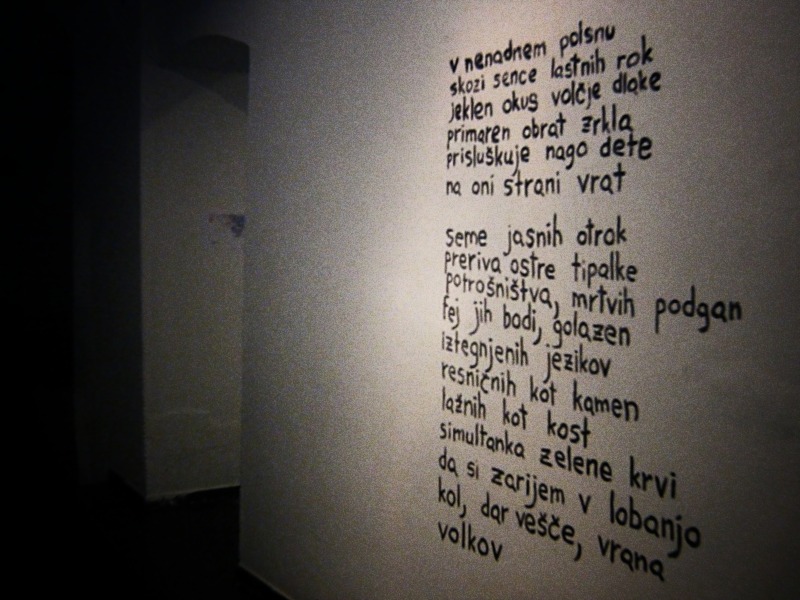 v nenadnem polsnu
skozi sence lastnih rok
jeklen okus volčje dlake
primaren obrat zrkla
prisluškuje nago dete
na oni strani vrat
seme jasnih otrok
preriva ostre tipalke
potrošništva, mrtvih podgan
fej jih bodi, golazen
iztegnjenih jezikov
resničnih kot kamen
lažnih kot kost
simultanka zelene krvi
da si zarijem v lobanjo
kol, dar vešče, vrana
volkov